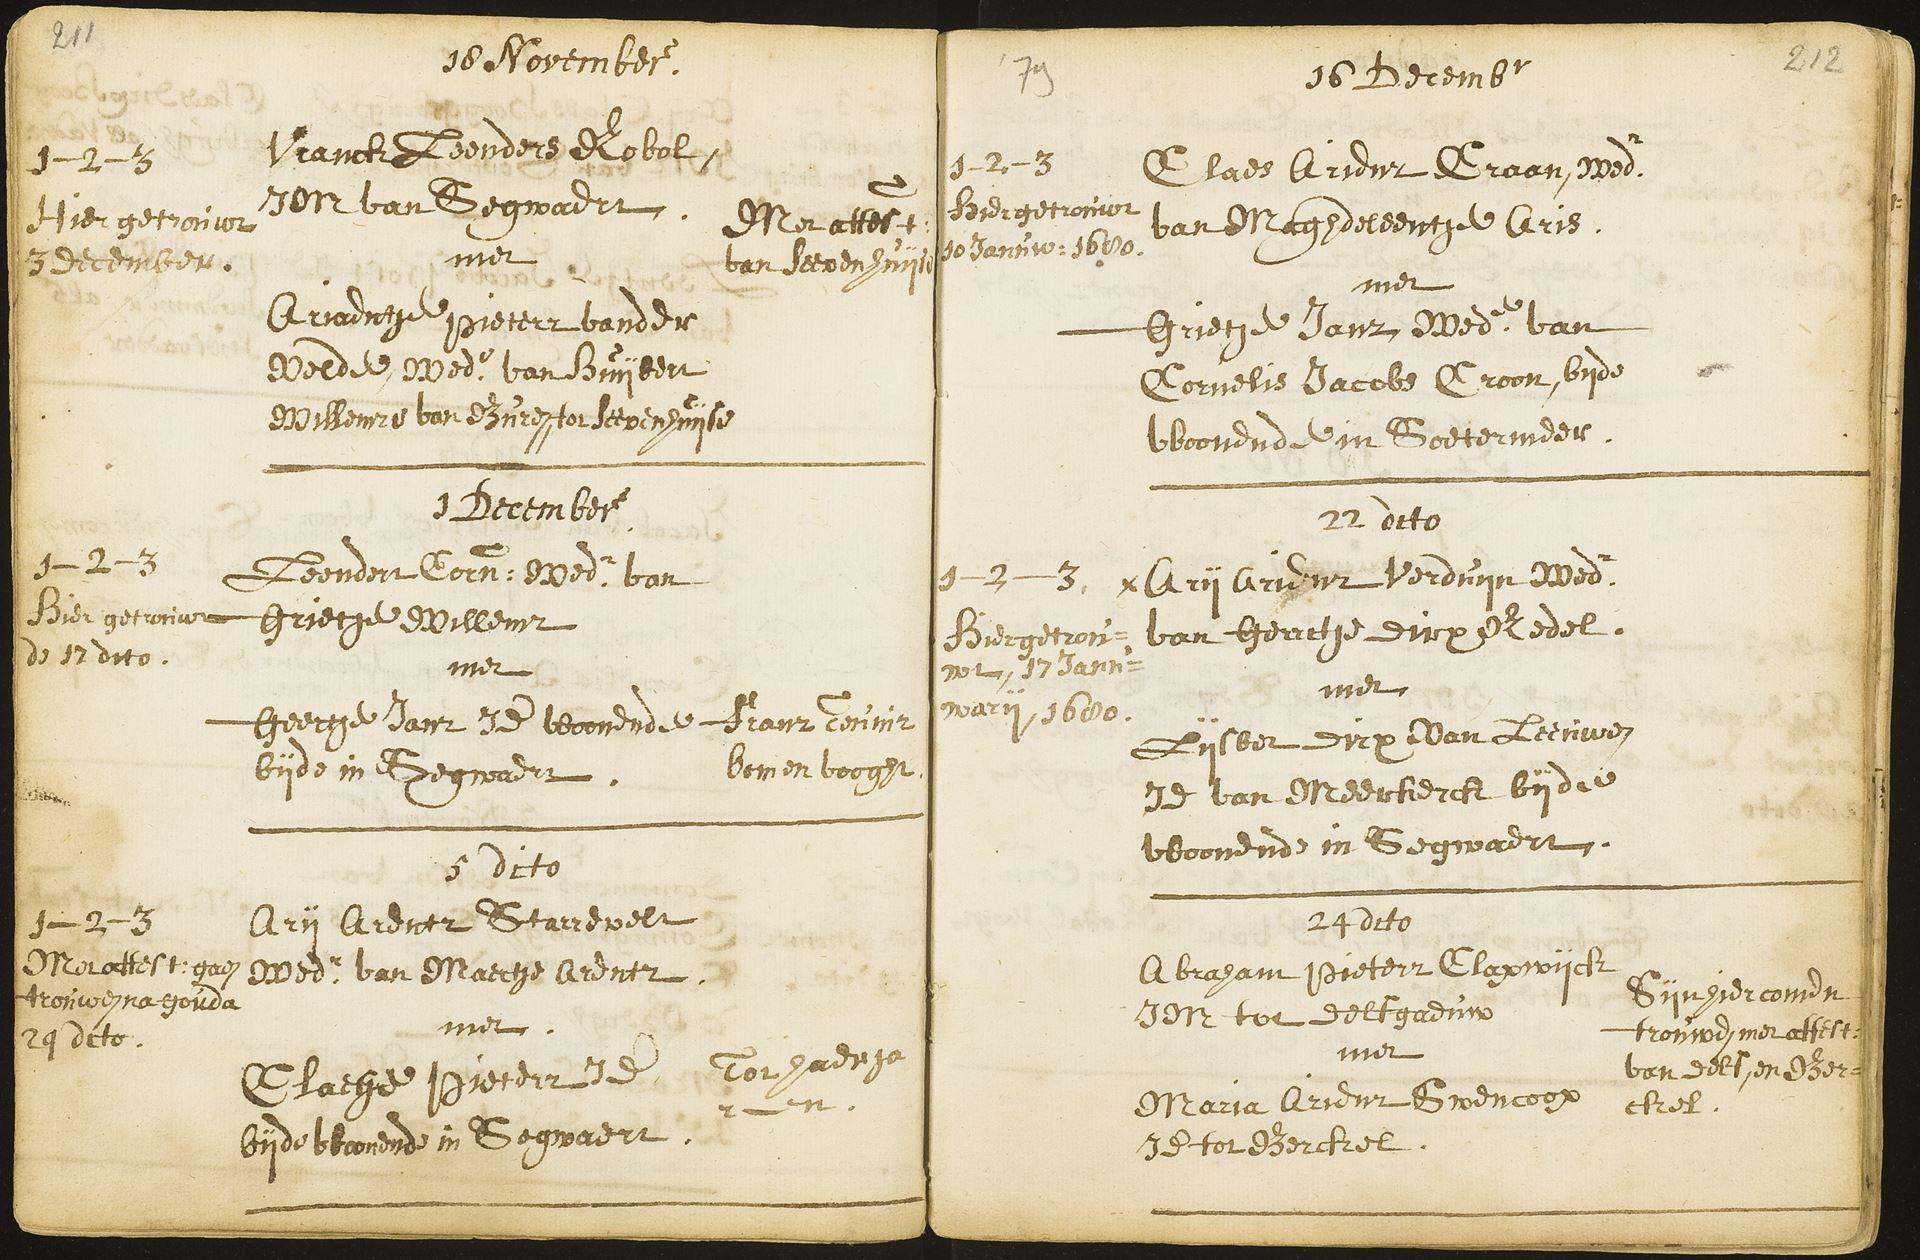 211
18 November.
1-2-3
Hier getrouwt
3 december.
Vranck Leenders Robol,
JM van Segwaert.
met
Met attest:
van Seevenhuijse
Ariaentje Pieters vander
Velde, Wede. van Huijbert
Willems van Buren tot Seevenhuijse
1 December.
1-2-3
Hier getrouwt
de 17 dito.
Leendert Corn: Wedr. van
Grietje Willems
met
Geertje Jans JD woonende
beijde in Segwaert.
Frans Teunis
bomen vooght.
5 dito
1-2-3
Met attest: gaen
trouwen na gouda
24 dito.
Arij Arents Starrevelt
Wedr. van Maertje Arents.
met.
Claesje Pieters JD
beijde woonende in Segwaert.
212
'79
16 Decembr
1-2-3
Hier getrouwt
10 Januw: 1680.
Claes Ariens Craan, Wedr.
van Maghdeleentje Aris.
met
Grietje Jans, Wede. van
Cornelis Jacobs Croon, bijde
woonende in Soetermeer.
22 dito
1-2-3.
Hier getrou=
wt, 17 Jann=
warij, 1680.
x Arij Ariens Verduijn Wedr.
van Gerretje Dirx Redel.
met
Lijsbet Dirx Van Leeuwen
JD van Meerkerck bijde
woonende in Segwaert.
24 dito
Abraham Pieters Clapwijck
JM tot Delfgaeuw
met
Maria Ariens Swencoop
JD tot Berckel.
Sijn hier comen
trouwen met attest:
van Delf, en Ber=
ckel.